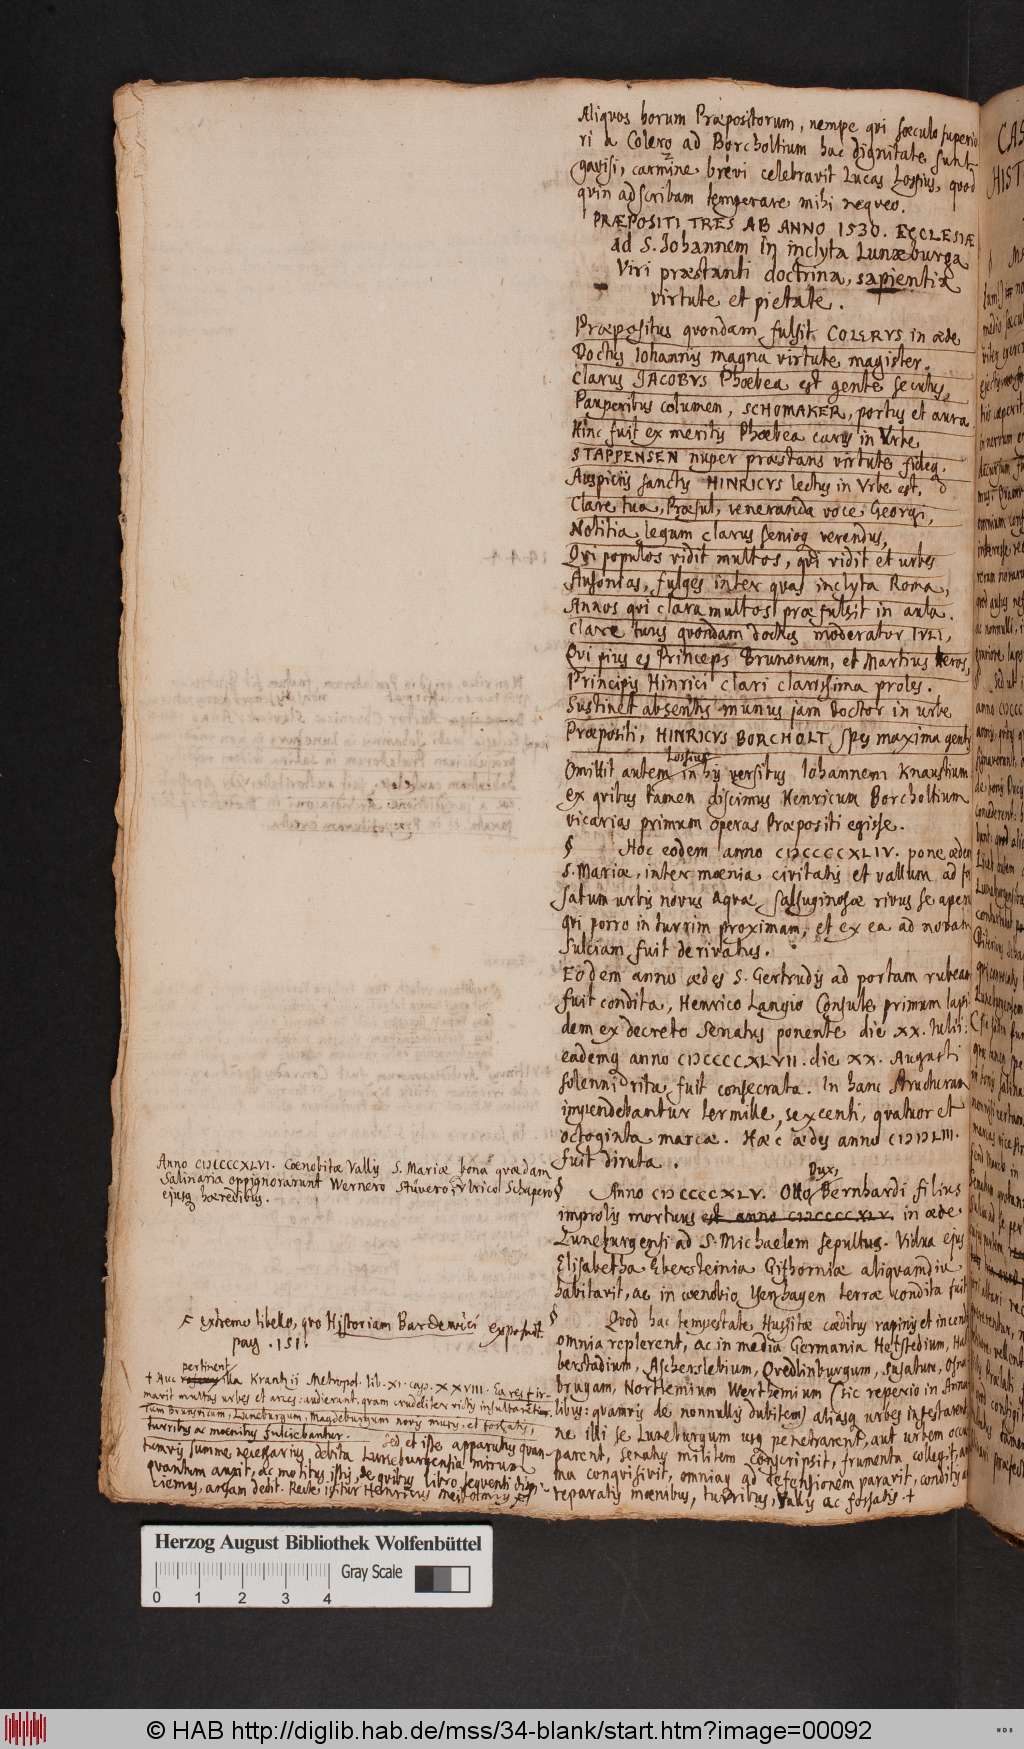 Aliquos horum Præpositorum, nempe qui sæculo superio
ri a Colero ad Borcholtium hac dignitate sunt
gavisi, carmine brevi celebravit Lucas Lossius, quod
quin adscribam temperare mihi nequeo.
PRÆPOSITI TRES AB ANNO 1530. ECCLESIÆ
ad S. Johannem in inclyta Lunæburga
Viri præstanti doctrina, sapientia
virtute et pietate.
Præpositus quondam fulsit COLERVS in æde
Doctus Iohannis magna virtute magister.
Clarus JACOBVS Phœbea est gente secutus,
Pauperibus columen, SCHOMAKER, portus et aura
Hinc fuit ex meritis Phœbea carus in Vrbe
STAPPENSEN nuper præstans virtute fideq.
Auspiciis sanctis HINRICVS lectus in Vrbe est,
Clare tua, Præsul, veneranda voce Georgi,
Notitia legum clarus senioq verendus,
Qvi populos vidit multos, qui vidit et urbes
Ausonias, fulges inter quas inclyta Roma,
Annos qui clara multos præfulsit in aula.
Clare tuus quondam doctus moderator IVLI,
Qvi pius es Princeps Brunonum, et Martius Heros,
Principis Hinrici clari clarissima proles.
Sustinet absentis munus jam Doctor in urbe
Præpositi, HINRICVS BORCHOLT spes maxima gentis
Omittit autem Lossius in his versibus Iohannem Knaustium
ex qvibus tamen discimus Henricum Borcholtium
vicarias primum operas Præpositi egisse.
§ Hoc eodem anno CIƆCCCCXLIV. pone ædem
S. Mariæ, inter mœnia civitatis et vallum ad fos
satum urbis novus aquæ salsuginosæ rivus se aperu
qui porro in turrim proximam, et ex ea ad novam
Sulciam fuit derivatus.
Eodem anno ædes S. Gertrudis ad portam rubeam
fuit condita, Henrico Langio Consule primum lapi
dem ex decreto Senatus ponente die XX. Iulii:
eademq anno CIƆCCCCXLVII. die XX. Augusti
solenni ritu fuit consecrata. In hanc structuram
impendebantur ter mille, sexcenti, qvatuor et
octoginta marcæ. Hæc ædes anno CIƆIƆLIII.
fuit diruta.
Anno CIƆCCCCXLVI. Cœnobitæ Vallis S. Mariæ bona quædam
Salinaria oppignorarunt Wernero Stüvero, Vlrico Schapero
ejusq hæredibus.
§ Anno CIƆCCCCXLV. Otto Dux, Bernhardi filius
improlis mortuus est anno CIƆCCCCXLV. in æde
Luneburgensi ad S. Michaelem sepultus. Vidua ejus
Elisabetha Ebersteinia Gifhorniæ aliquamdiu
habitavit, ac in cœnobio Ysenhagen terræ condita fuit
§ Qvod hac tempestate Hussitæ cædibus rapinis et incend
omnia replerent, ac in media Germania Hetstedium, Hal
berstadium, Ascherslebium, Qvedlinburgum, Susatum, Osna
brugam, Northemium Werthemium (sic reperio in Anna
libus: quamvis de nonnullis dubitem) aliasq urbes infestarent
ne illi se Luneburgum usq penetrarent, aut urbem occu
parent, senatus militem conscripsit, frumenta collegit, ar
ma conquisivit, omniaq ad defensionem paravit, conditis ac
reparatis mœnibus, turribus, vallis ac fossatis. +
F extremo libello, quo Historiam Bardevici exposuit.
pag. 151.
+ Huc pertinent illa Krantzii Metropol. lib. XI. cap. XXVIII. Ea res fir-
mavit multas urbes et arces: audierant quam crudeliter victis insultarent.
Tum Brunsvicum, Luneburgum, Magdeburgum novis muris et fossatis,
turribus ac mœnibus fulciebantur. Sed et iste apparatus quan-
tumvis summe necessarius debita Luneburgensia mirum
quantum auxit, ac motibus istis, de quibus libro sequenti dispi-
ciemus, ansam dedit. Recte igitur Henricus Meibomius